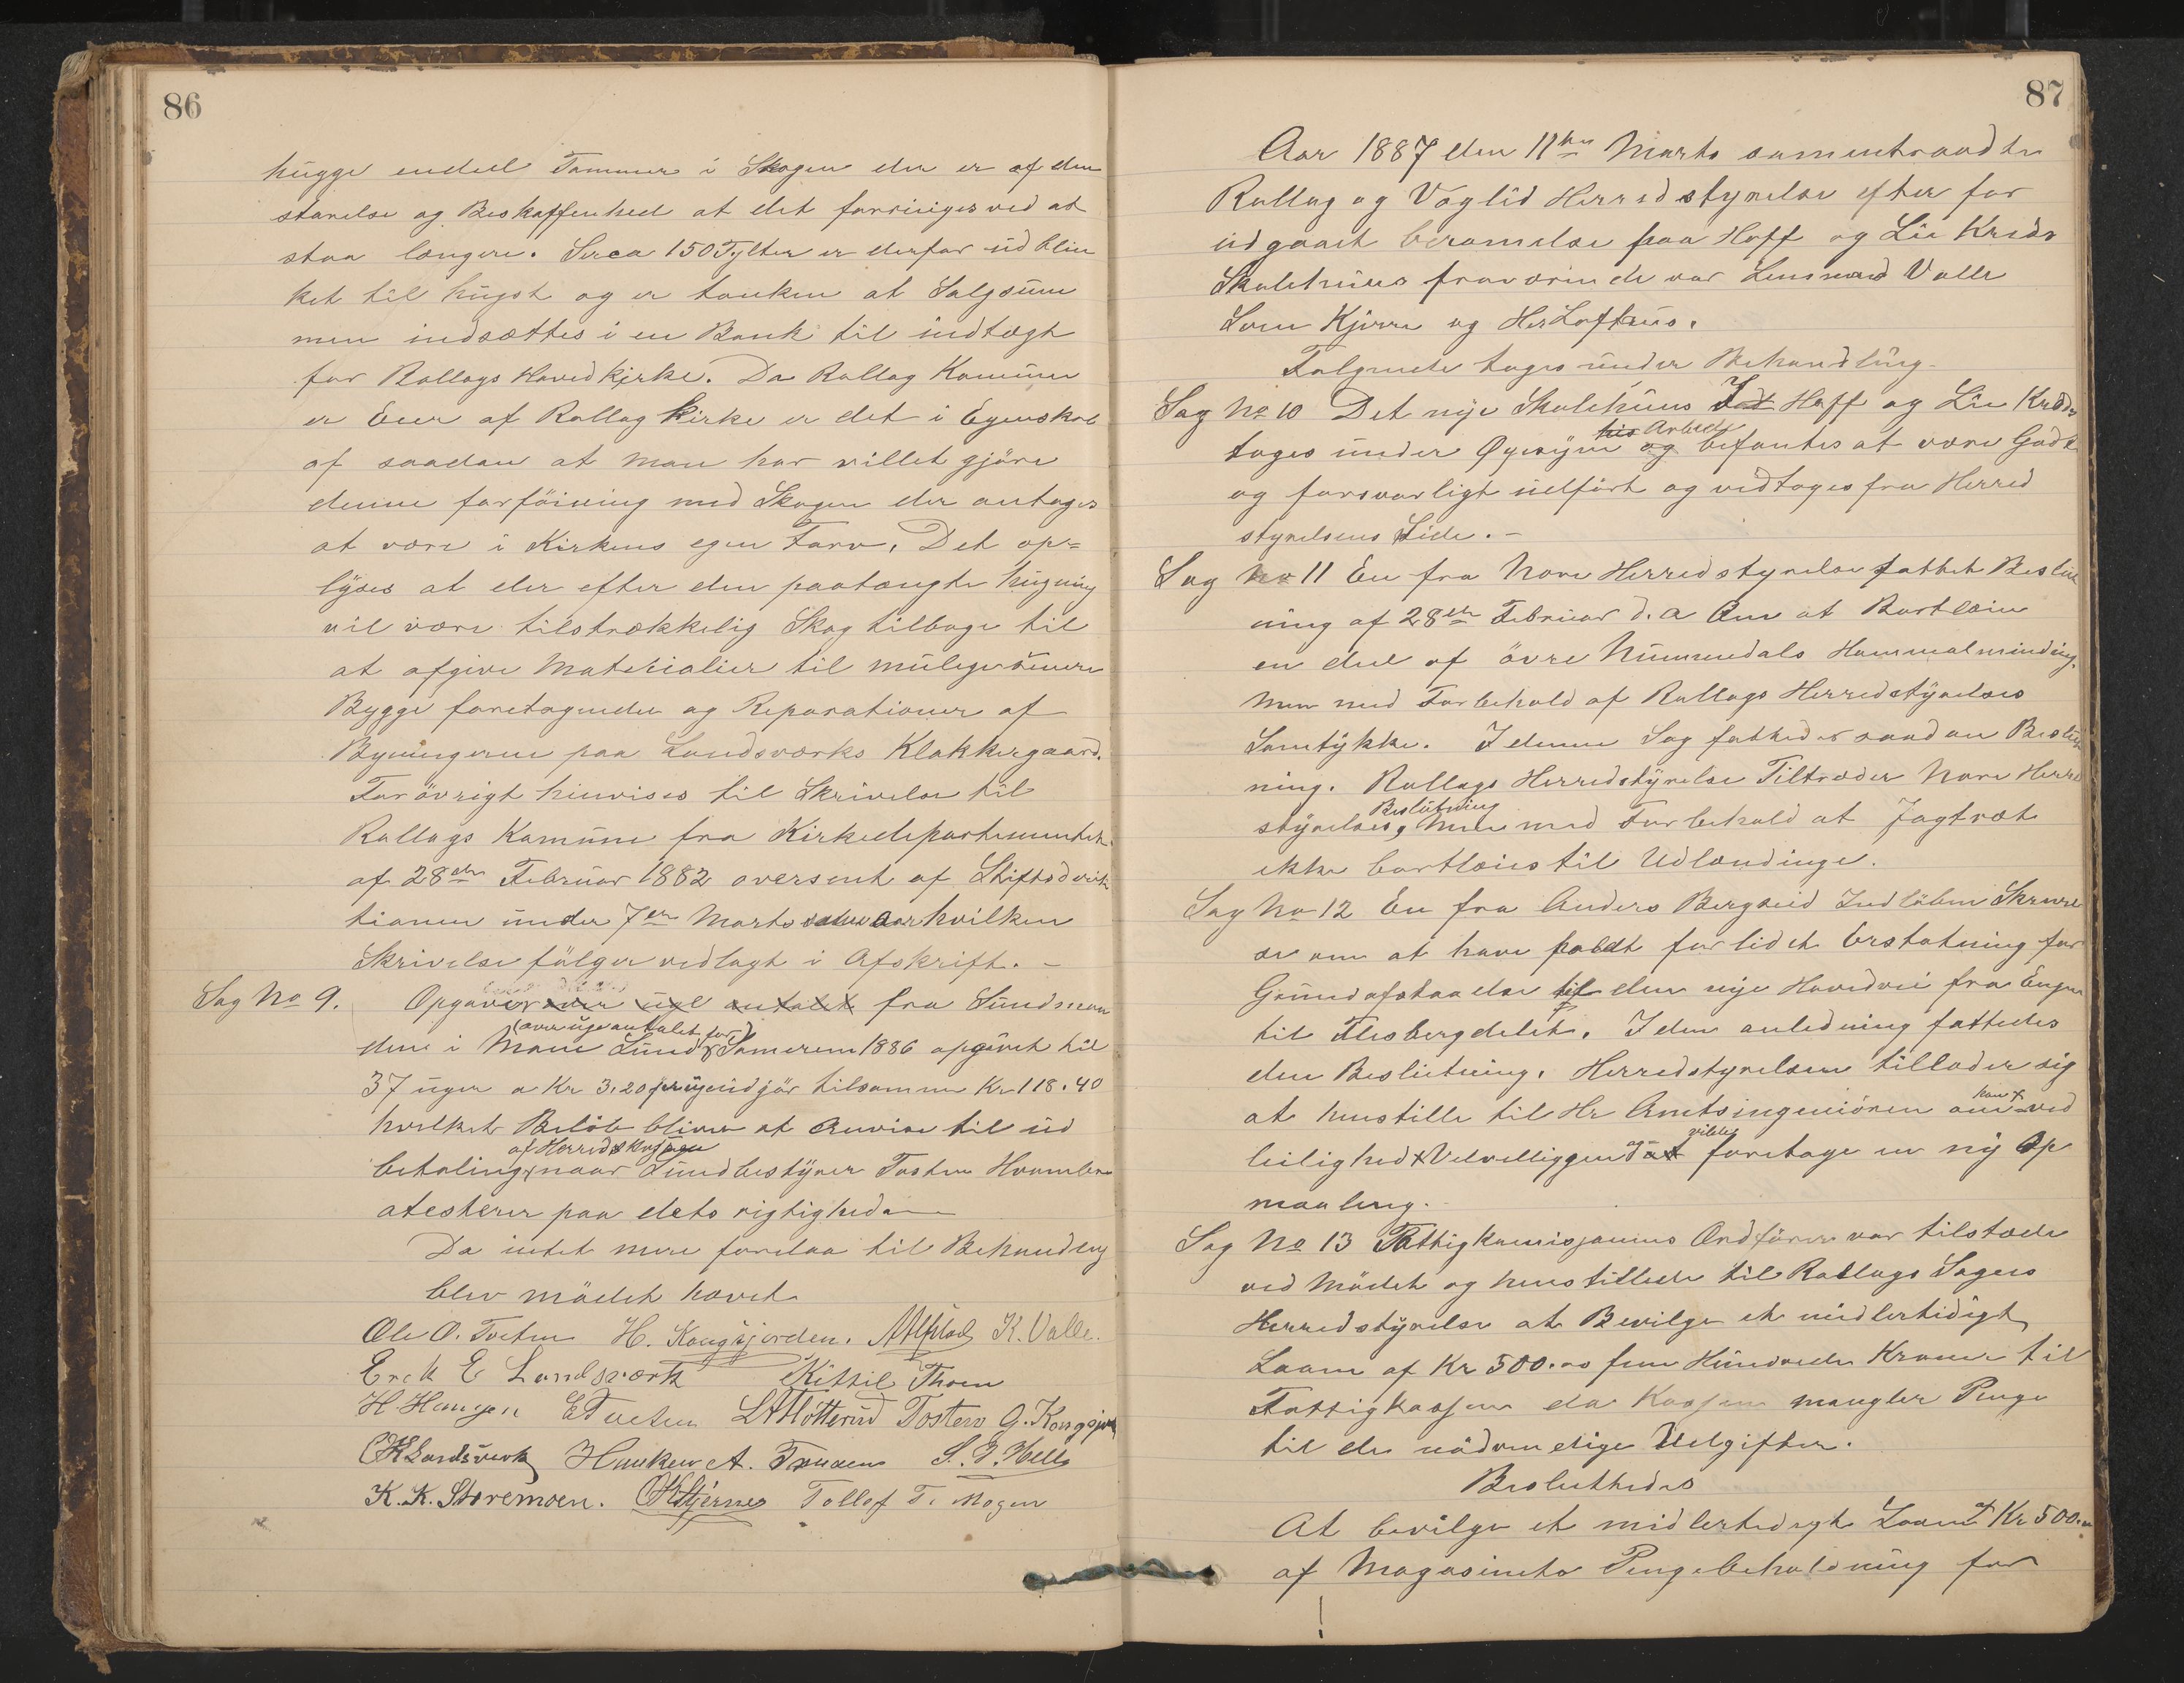 86
hugge endeel Tømmer i Skogen der er af den
størelse og Beskaffenhed at det forringes ved at
staa længere. Serca 150 Tylter er derfor udblin
ket til hugst og er tanken at Salgsum
men indsættes i en Bank til indtægt
for Rollags Hovedkjerke. Da Rollag Kommune
er Eier af Rollag Kirke er det i Egenskab
af saadan at man har villet gjöre
denne forföining med Skogen der antages
at være i Kirkens egen Tarv. Det op=
lyses at der efter den paatængte hugning
vil være tilstrækkelig Skog tilbage til
at afgive Materialier til muligensvære
Bygge foretagender og Reparationer af
Bygningerne paa Landsværks Klokkergaard.
For övrigt henvises til Skrivelse til
Rollags Kamune fra Kirkedepartementet
af 28de Februar 1882 oversent af Stiftsdirek
tionen under 7de Marts samme Aar hvilken
Skrivelse fölger vedlagt i Afskrift. —
Sag No 9. Opgaver over uge antalet fra Sundman
(over uge antalet for)
dene i Mane Sund Someren 1886 opgivet til
37 uger a Kr 3,20 pr uge udgjör tilsammen Kr 118.40
hvilket Belöb bliver at Anvise til ud
af Herredskassen
betaling naar Sundbestyrer Tosten
atesterer paa dets rigtighed
Da intet mere forelaa til Behandling
blev mödet hævet
Ole O. Traaen H. Kongsjorden. K. Valle.
Erik E Landsværk Kittil Thoen
H Haugen E Traaen Tosten G. Kongsjord
Landsverk Haaken A. Traaen S. P. Helle
K. K. Storemoen. Stjernes Tollef T. Mogen
87
Aar 1887 den 11te Marts sammentraadte
Rollag og Væglid Herredstyrelse efter for
udgaaet beramelse paa Hoff og Lie Kreds
Skolehuus fraværende var Lensmand Valle
Som Kjirre og Her Lofthus.
Fölgende toges under Behandling.
Sag No 10 Det nye Skolehuus I Hoff og Lie Kreds
his Arbeid
toges under Øyesyn og befantes at være Godt
og forsvarligt udfört og vedtoges fra Herred
styrelsens Side. —
Sag No 11 En fra Nore Herredstyrelse fattet Beslut
ning af 28de Februar d. a Om at Bortleie
en deel af övre Nummedals Hammalminding.
men med Forbehold af Rollags Herredstyrelses
Samtykke. I denne Sag fattedes saadan Beslut
ning. Rollags Herredstyrelse Tiltræder Nore Herre
Beslutning
styrelses, Men med Forbehold at Jagtræt
ikke bortleies til Udlændinge.
Sag No 12 En fra Anders Bergseid Indlöben Skrivel
se om at have faldt for lidet Erstatning for
Grundafstaaelse til den nye Hovedvei fra Enger
til Flesbergdelet. I den anledning fattedes
den Beslutning. Herredstyrelsen tillader sig
at henstille til Hr Amtsingeniören om ved
han
leilighed Velvelliggen og at foretage en ny Op
vilde
maaling.
Sag No 13 Fattigkamisjonens Ordförer var tilstæde
ved Mödet og henstillede til Rollags Sogns
Herredstyrelse at Bevilge et midlertidigt
Laan af Kr 500.00 fem Hundrede Kroner til
Fattigkassen da Kassen mangler Penge
til de nödvendige Udgifter.
Besluttedes
At bevilge et midlertedigt Laan af Kr 500.00
af Magasinets Pengebeholdning for